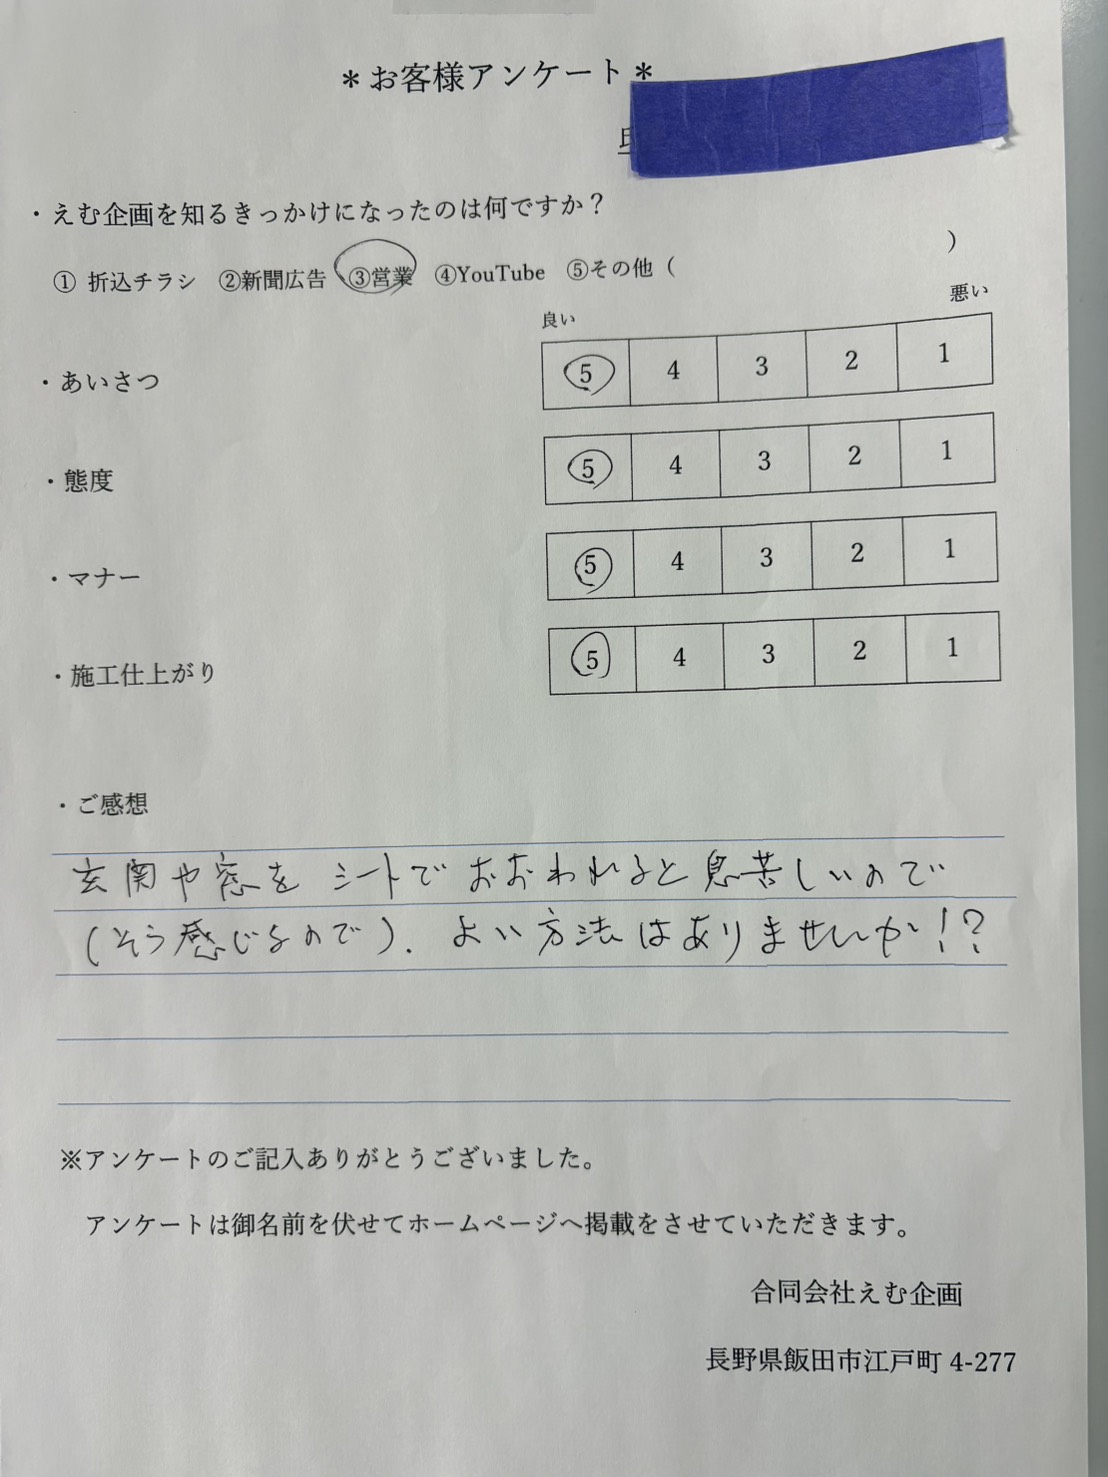 ＊お客様アンケート＊
・えむ企画を知るきっかけになったのは何ですか？
① 折込チラシ ②新聞広告 ③営業 ④YouTube ⑤その他（ ）
良い 悪い
・あいさつ 5 4 3 2 1
・態度 5 4 3 2 1
・マナー 5 4 3 2 1
・施工仕上がり 5 4 3 2 1
・ご感想
玄関や窓を シートでおおわれると息苦しいので
（そう感じるので）. よい方法はありませんか!?
※アンケートのご記入ありがとうございました。
アンケートは御名前を伏せてホームページへ掲載をさせていただきます。
合同会社えむ企画
長野県飯田市江戸町 4-277